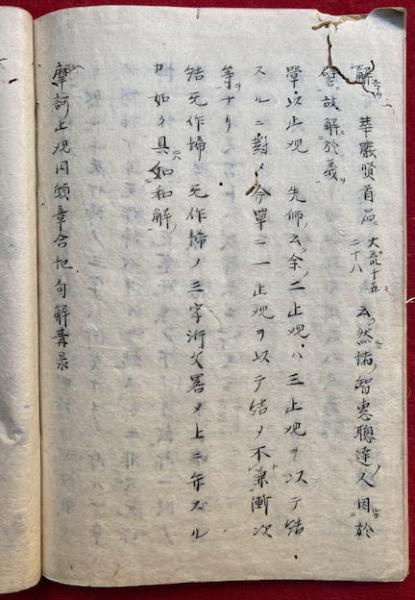 解 華嚴賢首品 大疏十五 二十八 云然諸智惠聰達人因於
譬故解於義
單以止觀 先師云余ノ二止觀ハ三止觀ヲ以テ結
スルニ對メ今單ニ一止觀ヲ以テ結ノ不兼漸次
等ナリ
結死作歸 死作歸ノ三字衍文畧メ上ニ弁ズル
カ如々具如和解
摩訶止觀同領章合 句解冓录